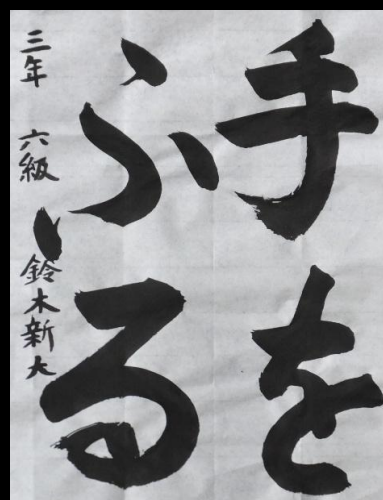 手を
ふる
三年 六級 鈴木新大